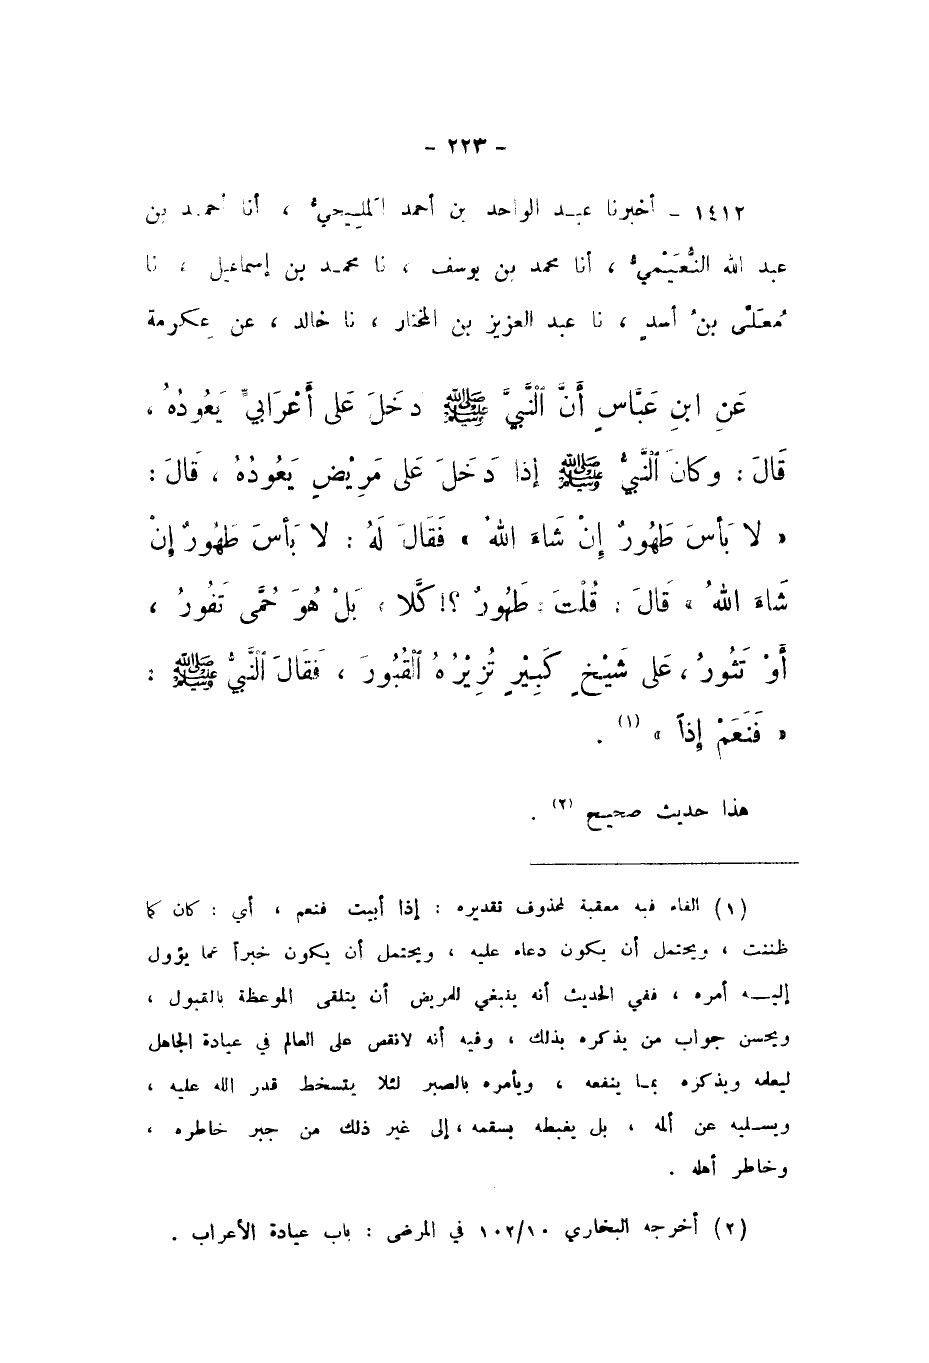 - ٢٢٣ -
١٤١٢ - أخبرنا عبد الواحد بن أحمد المليحيُّ ، أنا أحمد بن
عبد الله النُّعَيْميُّ ، أنا محمد بن يوسف ، نا محمد بن إسماعيل ، نا
مُعَلَّى بنُ أسدٍ ، نا عبد العزيز بن المختار ، نا خالد ، عن عِكرمة
عَنِ ابنِ عَبَّاسٍ أَنَّ ٱلنَّبيَّ ﷺ دخَلَ عَلى أَعْرَابيٍّ يَعُودُهُ ،
قَالَ : وكانَ ٱلنَّبيُّ ﷺ إذا دَخَلَ عَلى مَرِيْضٍ يَعُودُهُ ، قَالَ :
« لا بَأسَ طَهُورٌ إِنْ شَاءَ اللهُ » فَقَالَ لَهُ : لا بَأسَ طَهُورٌ إنْ
شَاءَ اللهُ » قَالَ : قُلْتَ : طَهُورٌ ؟! كَلَّا ، بَلْ هُوَ حُمَّى تَفُورُ ،
أَوْ تَثُورُ ، عَلى شَيْخٍ كَبِيْرٍ تُزِيْرُهُ ٱلقُبُورَ ، فَقَالَ ٱلنَّبيُّ ﷺ :
« فَنَعَمْ إِذاً » (١) .
هذا حديث صحيح (٢) .
(١) الفاء فيه معقبة لمحذوف تقديره : إذا أبيت فنعم ، أي : كان كما
ظننت ، ويحتمل أن يكون دعاء عليه ، ويحتمل أن يكون خبراً عما يؤول
إليه أمره ، ففي الحديث أنه ينبغي للمريض أن يتلقى الموعظة بالقبول ،
ويحسن جواب من يذكره بذلك ، وفيه أنه لانقص على العالم في عيادة الجاهل
ليعلمه ويذكره بما ينفعه ، ويأمره بالصبر لئلا يتسخط قدر الله عليه ،
ويسليه عن ألمه ، بل يغبطه بسقمه ، إلى غير ذلك من جبر خاطره ،
وخاطر أهله .
(٢) أخرجه البخاري ١٠٢/١٠ في المرضى : باب عيادة الأعراب .